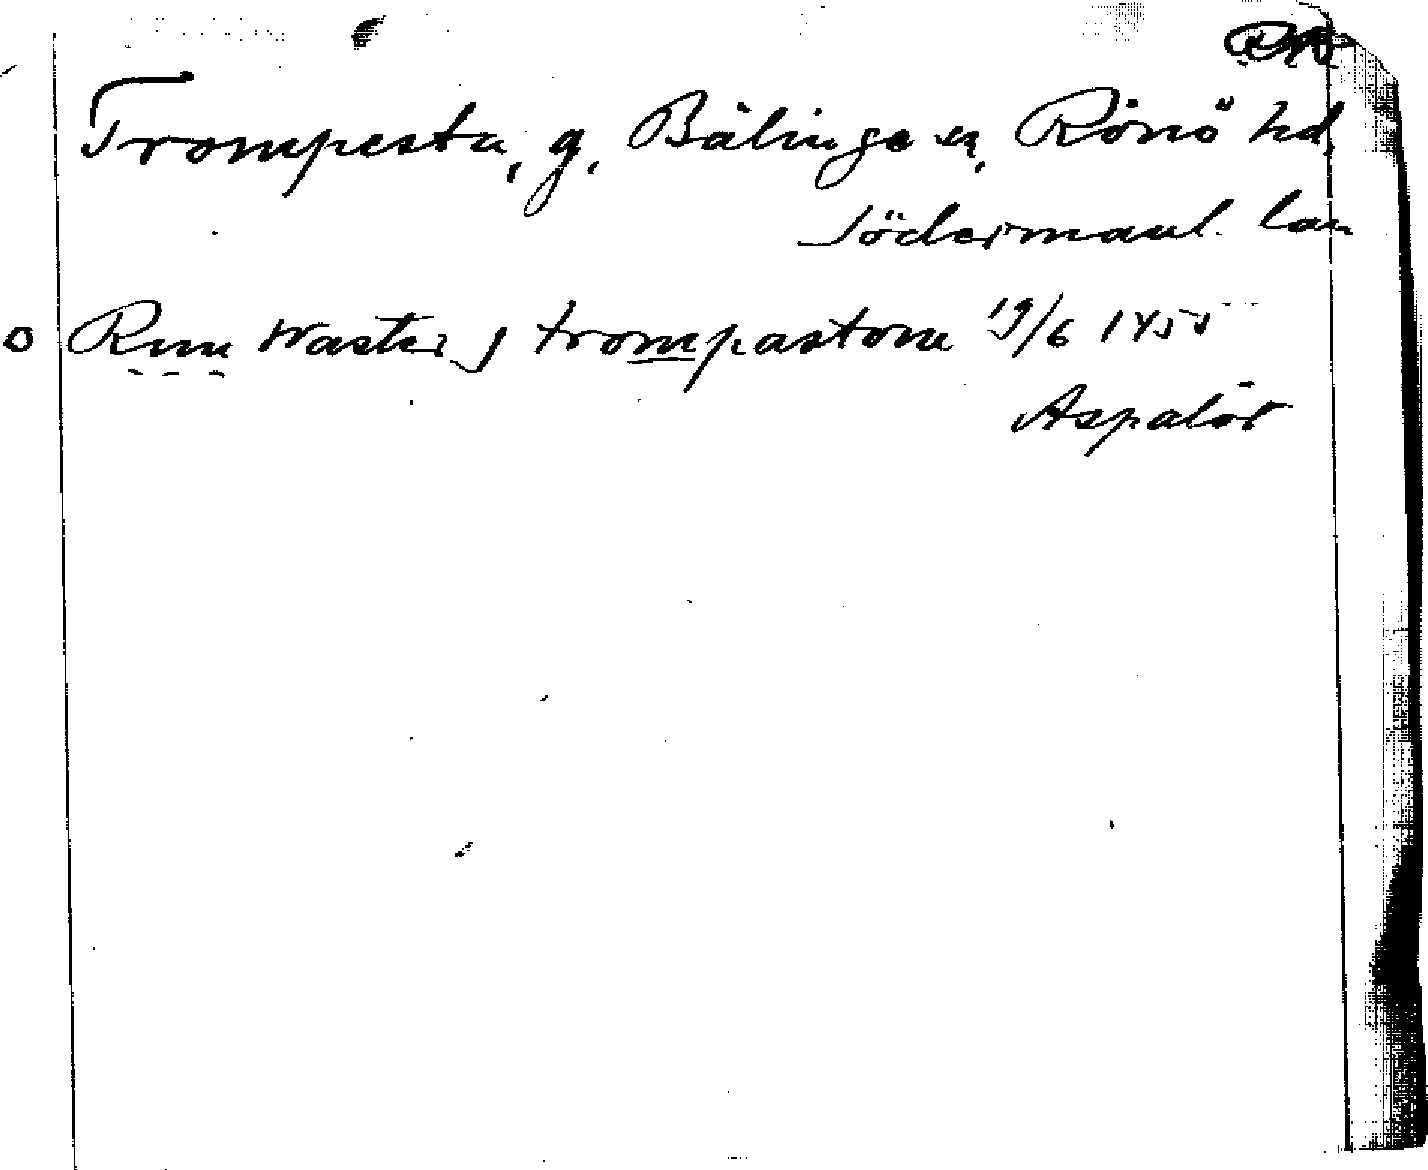 Trompesta, g, Bälinge sn, Rönö hd,
Södermanl. län
o Rum Waster J trompastom 19/6 1455
Aspalör